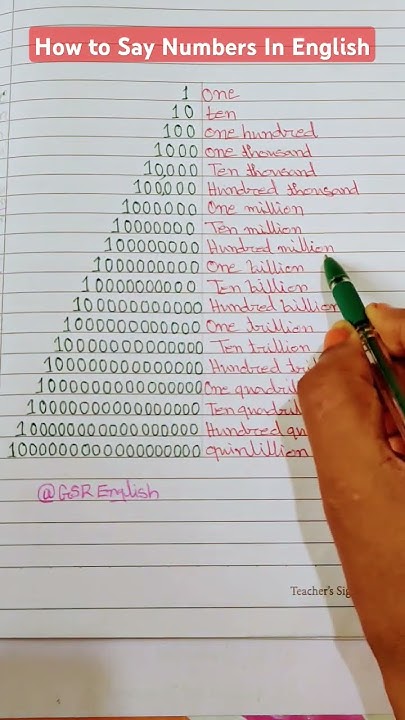 How to Say Numbers In English
1 One
10 ten
100 one hundred
1000 one thousand
10,000 Ten thousand
100,000 Hundred thousand
1000000 One million
10000000 Ten million
100000000 Hundred million
1000000000 One billion
10000000000 Ten billion
100000000000 Hundred billion
1000000000000 One trillion
10000000000000 Ten trillion
100000000000000 Hundred
1000000000000000 One
10000000000000000 Ten
100000000000000000 Hundred
1000000000000000000 quintillion
@GSR English
Teacher's